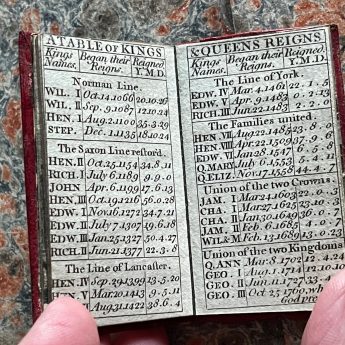 A TABLE of KINGS
Kings Names. Began their Reigns. Reigned Y. M. D.
Norman Line
WIL. I Oct.14.1066 20.10.26
WIL. II Sep.9.1087 12.10.24
HEN. I Aug.2.1100 35.3.29
STEP. Dec.1.1135 18.10.24
The Saxon Line restord.
HEN. II Oct.25.1154 34.8.11
RICH. I July.6.1189 9.9.0
JOHN Apr.6.1199 17.6.13
HEN. III Oct.19.1216 56.0.28
EDW. I Nov.16.1272 34.7.21
EDW. II July.7.1307 19.6.18
EDW. III Jan.25.1327 50.4.27
RICH. II Jun.21.1377 22.3.8
The Line of Lancaster.
HEN. IV Sep.29.1399 13.5.20
HEN. V Mar.20.1413 9.5.11
VI Aug.31.1422 38.6.4
& QUEENS REIGNS
Kings Names. Began their Reigns. Reigned Y. M. D.
The Line of York.
EDW. IV Mar.4.1461 22.1.5
EDW. V Apr.9.1483 2.13
RICH. III Jun.22.1483 2.2.0
The Families united.
HEN. VII Aug.22.1485 23.8.0
HEN. VIII Apr.22.1509 37.9.6
EDW. VI Jan.28.1547 6.5.8
Q. MARY July.6.1553 5.4.11
Q. ELIZ. Nov.17.1558 44.4.7
Union of the two Crowns.
JAM. I Mar.24.1603 22.0.3
CHA. I Mar.27.1625 23.10.3
CHA. II Jan.30.1649 36.0.7
JAM. II Feb.6.1685 4.0.7
WIL & M Feb.13.1689 13.0.23
Union of the two Kingdoms
Q. ANN. Mar.8.1702 12.4.24
GEO. I Aug.1.1714 12.10.10
GEO. II Jun.11.1727 33.4.
GEO. III Oct.25.1760, wh
God pre